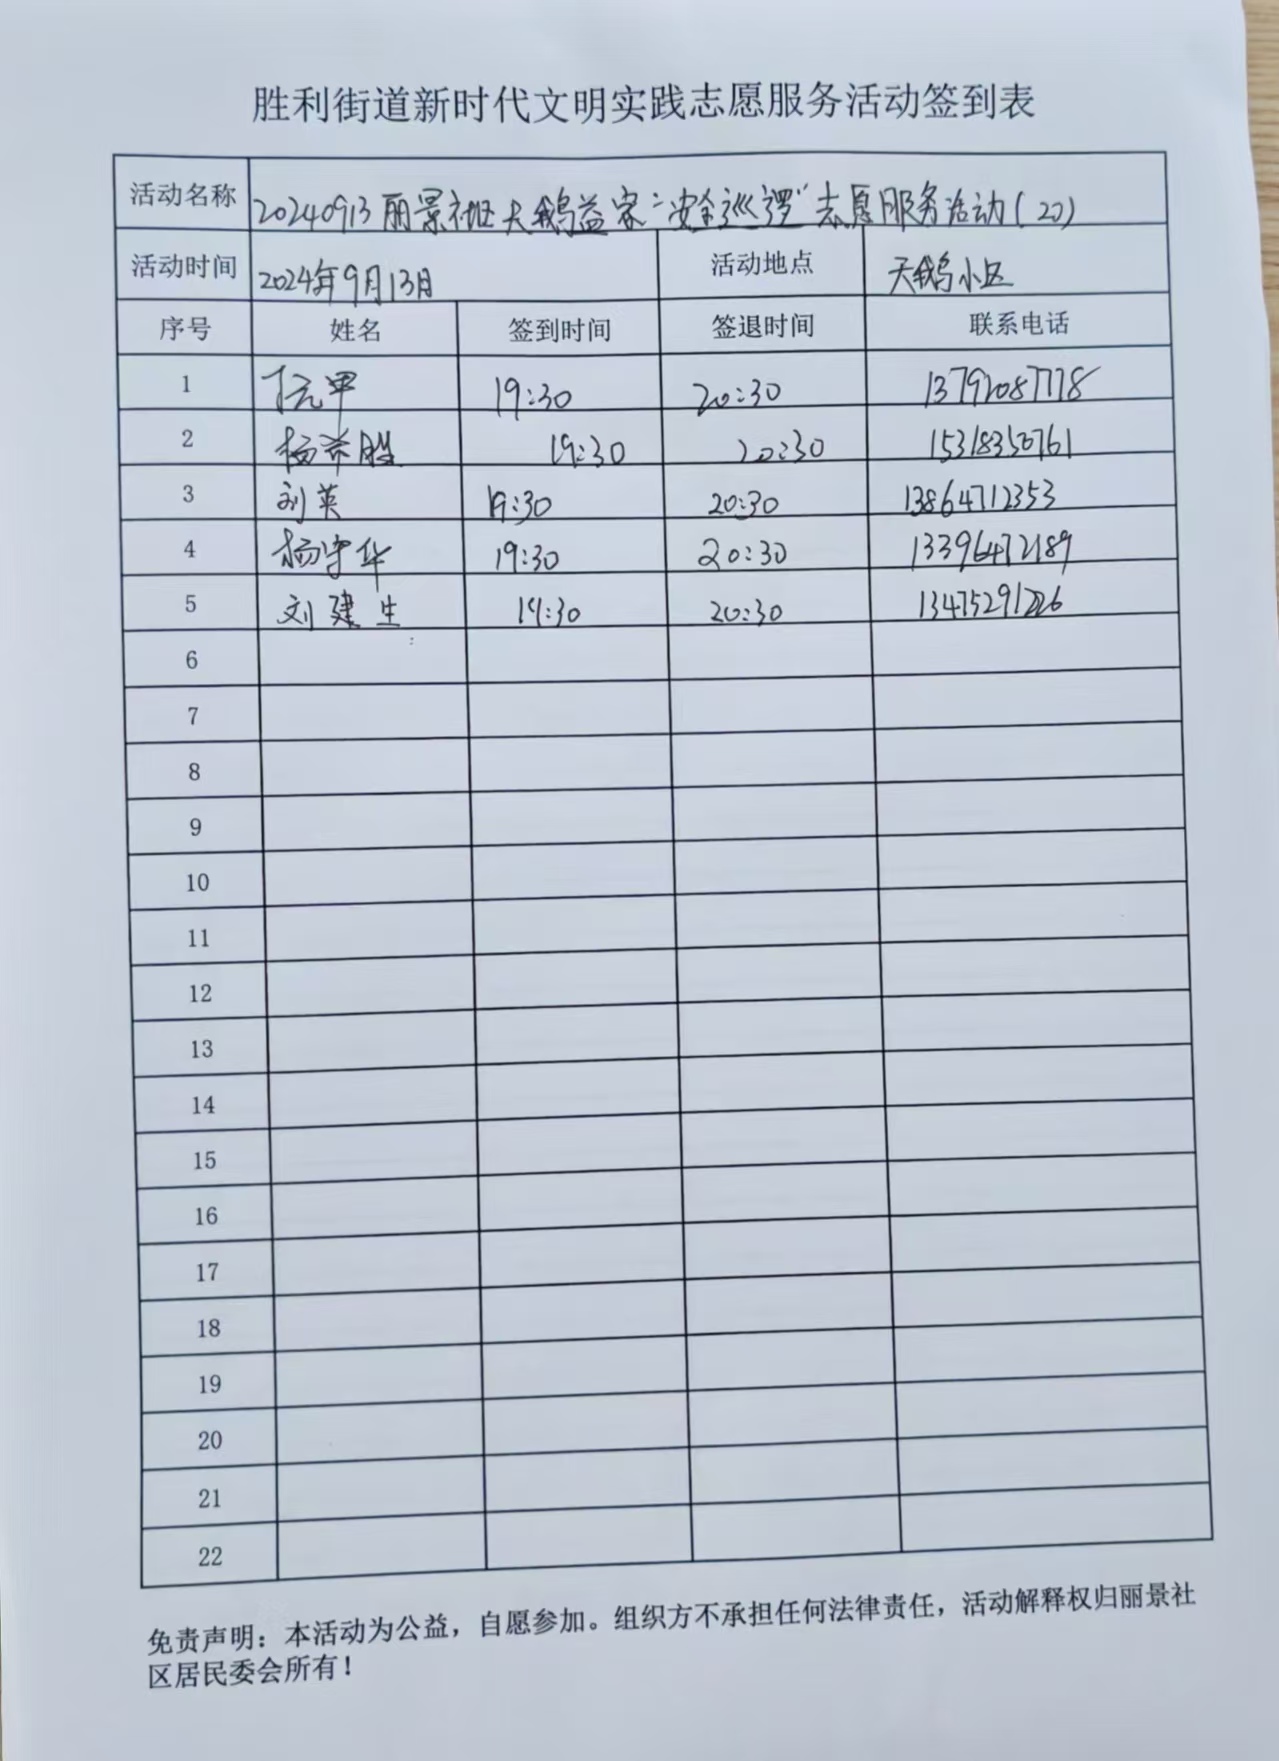 胜利街道新时代文明实践志愿服务活动签到表
活动名称 20240913丽景社区天鹅益家“安全巡逻”志愿服务活动(20)
活动时间 2024年9月13日 活动地点 天鹅小区
序号 姓名 签到时间 签退时间 联系电话
1 19:30 20:30 13791087778
2 杨希胜 19:30 20:30 15318350761
3 刘英 19:30 20:30 13864712353
4 杨守华 19:30 20:30 13396472189
5 刘建生 19:30 20:30 13475291226
6
7
8
9
10
11
12
13
14
15
16
17
18
19
20
21
22
免责声明：本活动为公益，自愿参加。组织方不承担任何法律责任，活动解释权归丽景社
区居民委会所有！